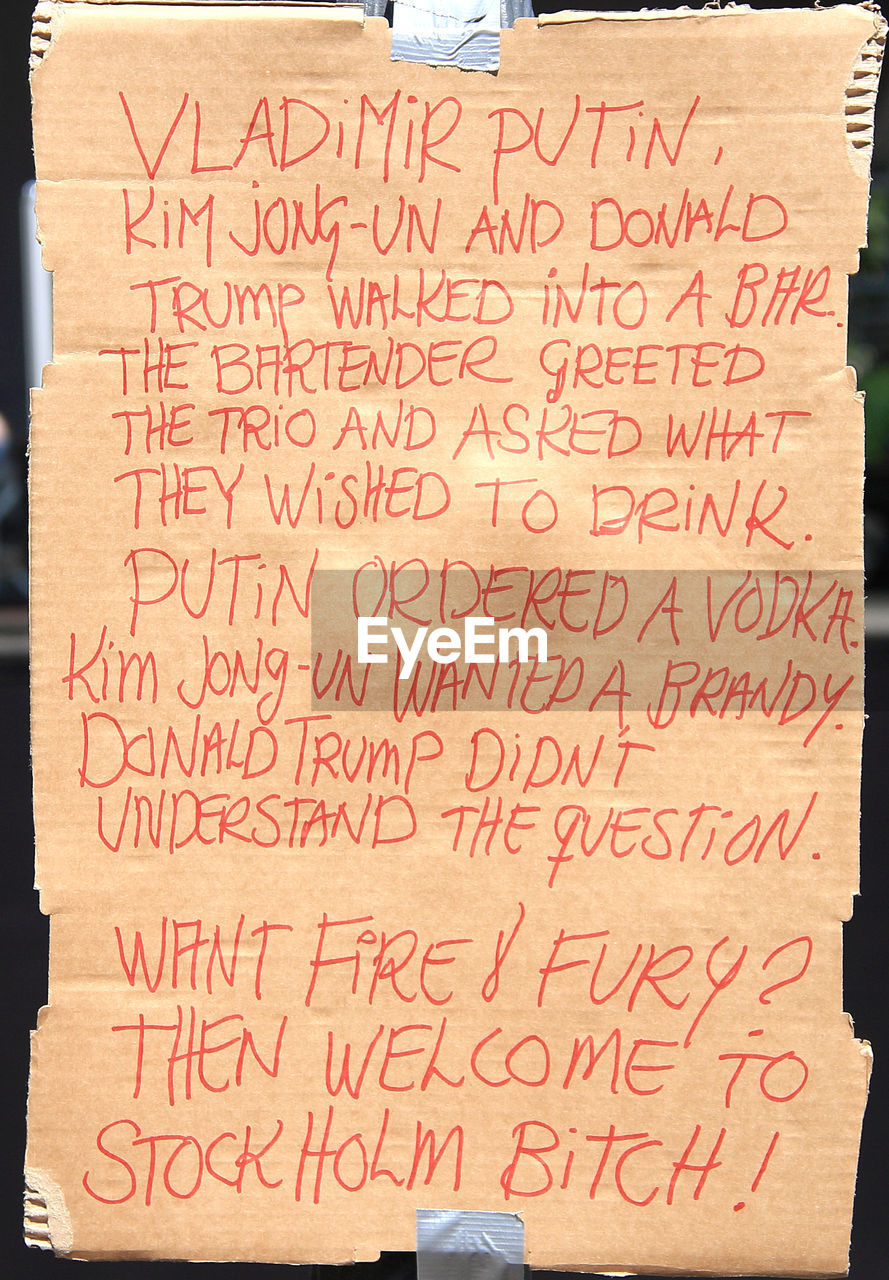 VLADiMiR PUTiN,
KiM JONG-UN AND DONALD
TRUMP WALKED iNTO A BAR.
THE BARTENDER GREETED
THE TRiO AND ASKED WHAT
THEY WiSHED TO DRiNK.
PUTiN ORDERED A VODKA.
KiM JONG-UN WANTED A BRANDY.
DONALD TRUMP DiDN'T
UNDERSTAND THE QUESTiON.
WANT FiRE & FURY?
THEN WELCOME TO
STOCKHOLM BiTCH!
EyeEm